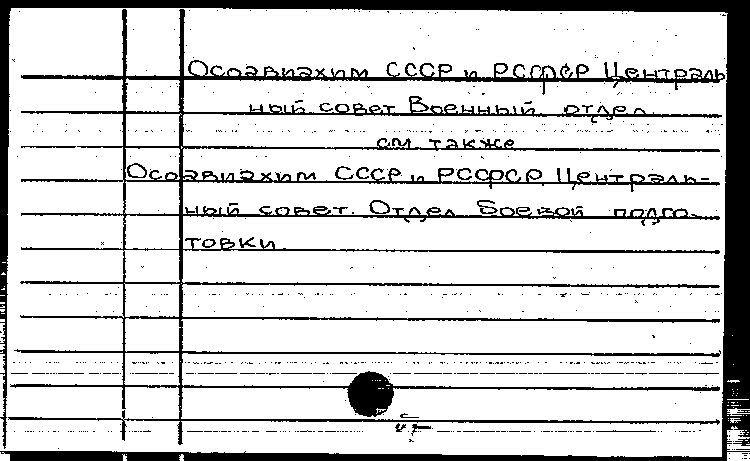 Осоавиахим СССР и РСФСР Централь
ный совет Военный отдел
см. также
Осоавиахим СССР и РСФСР. Централь-
ный совет. Отдел боевой подго-
товки.